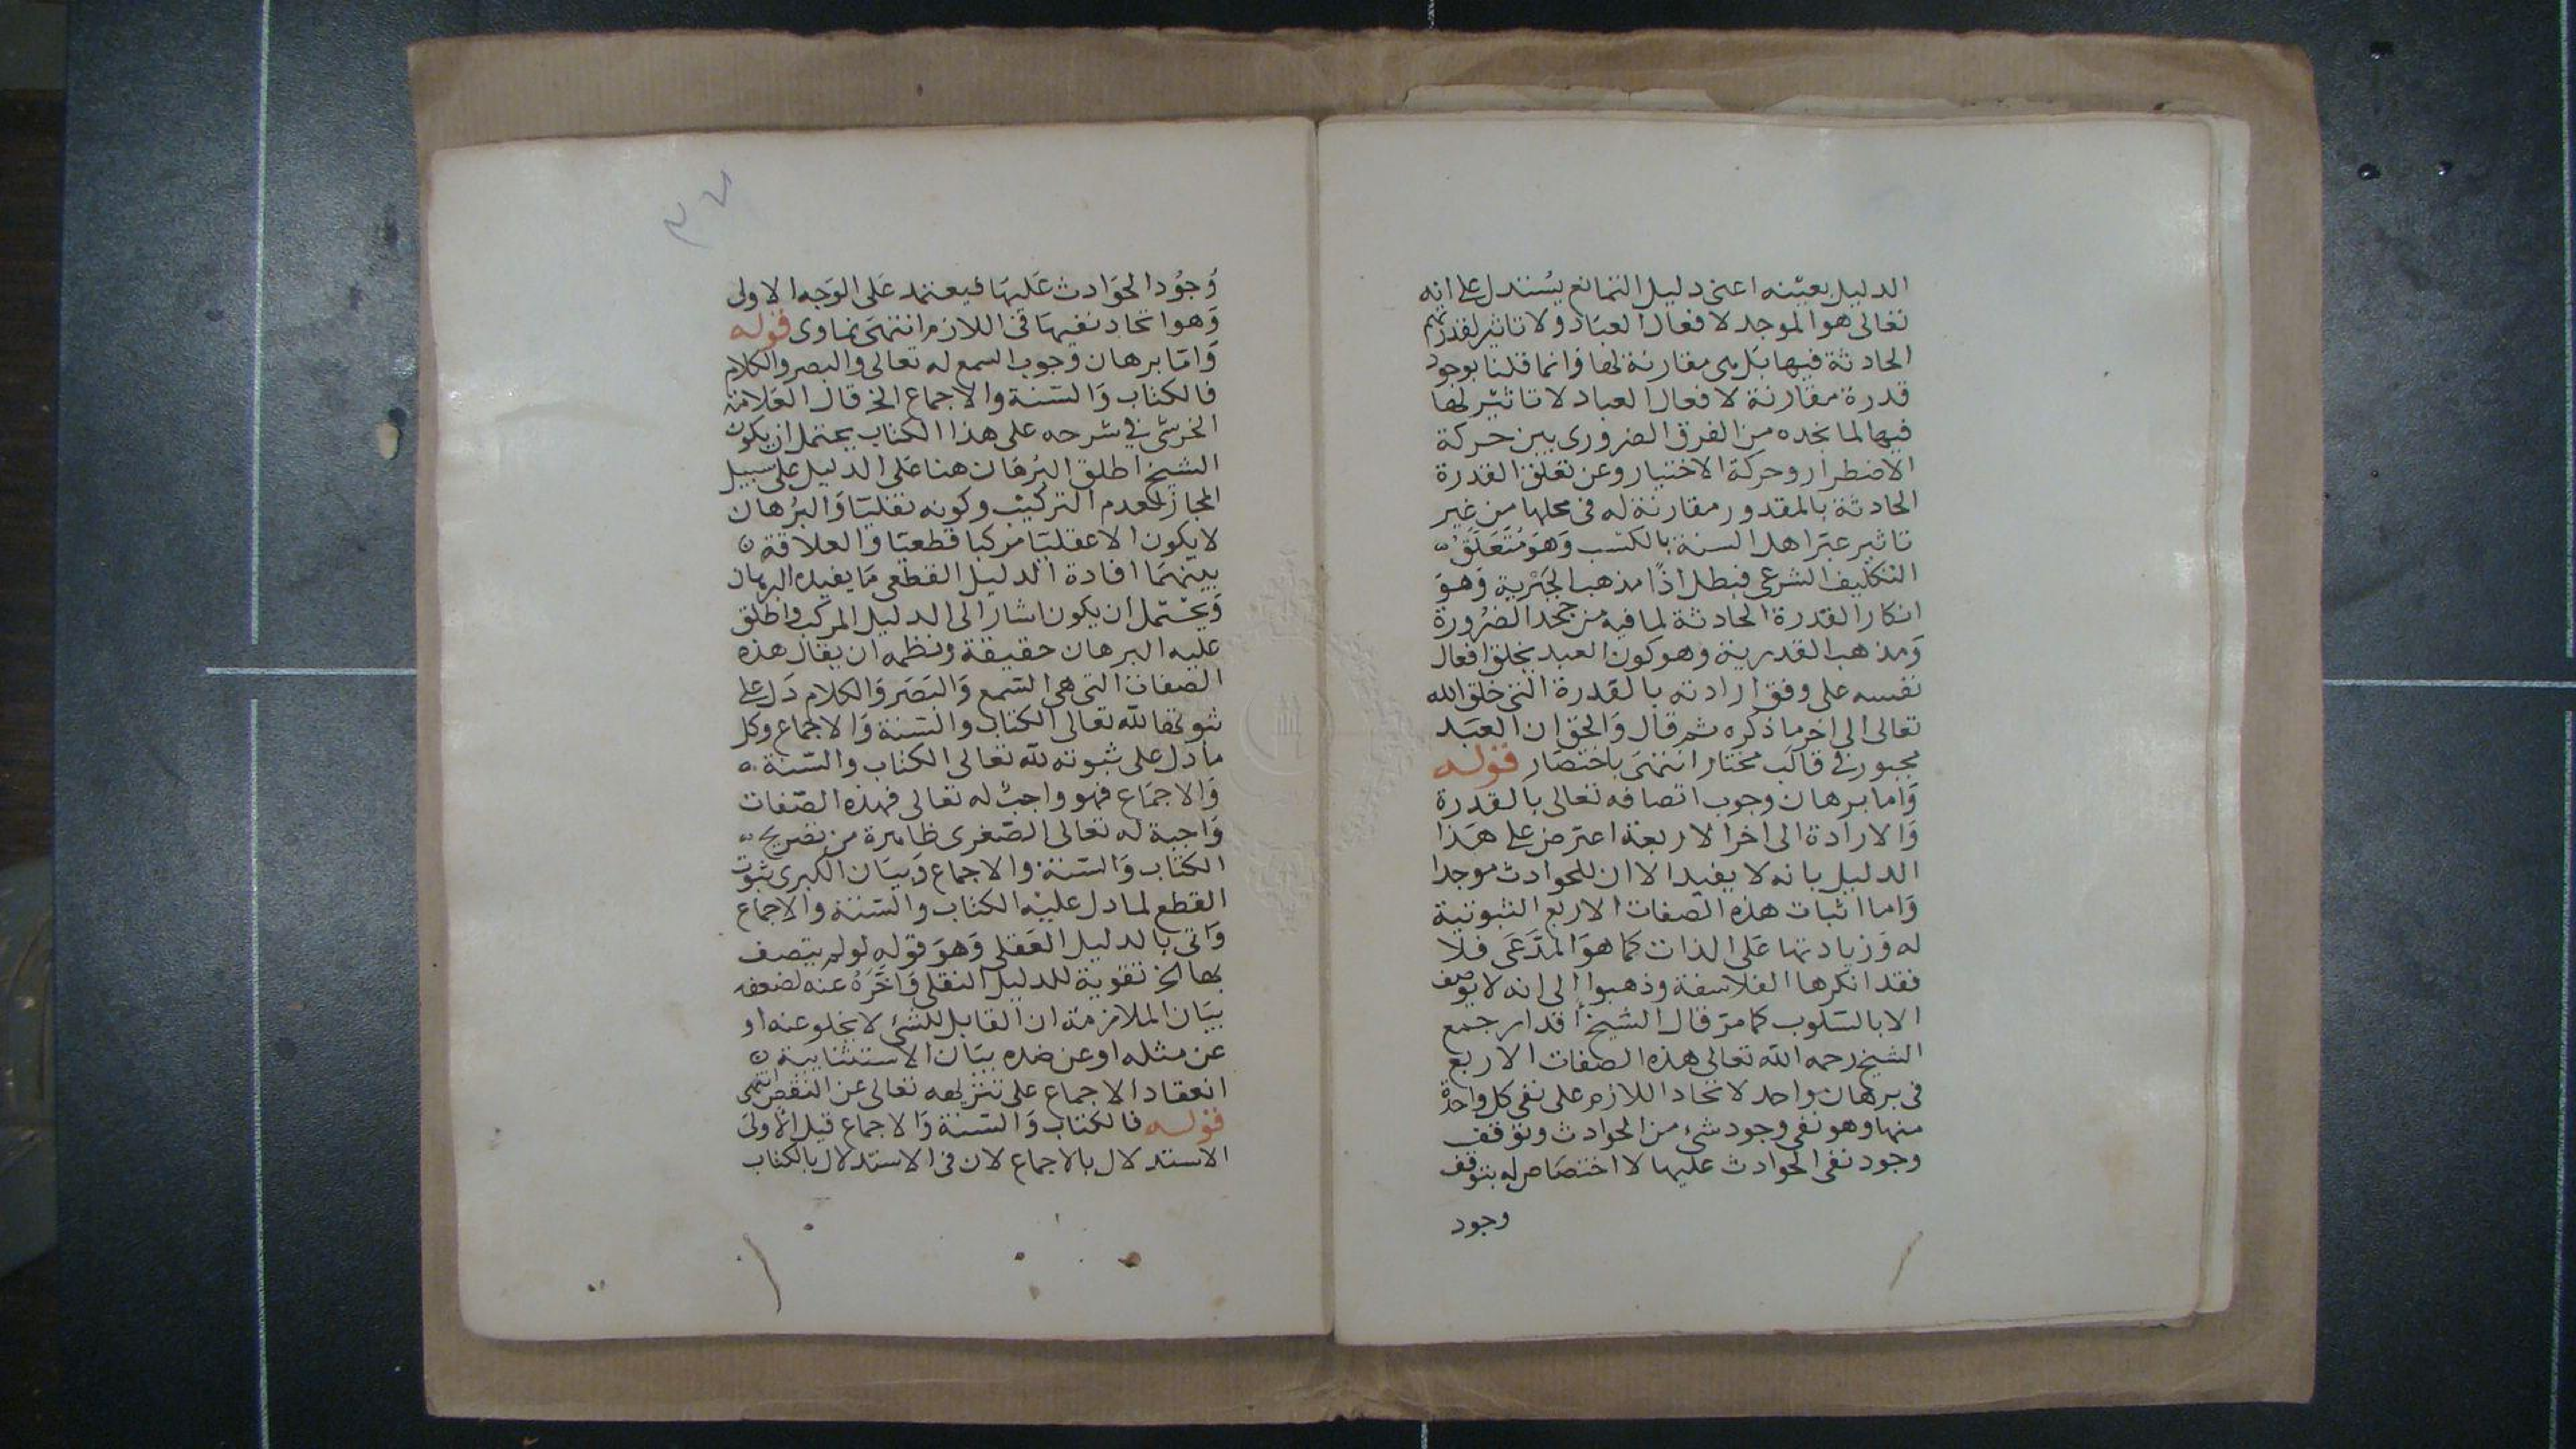 الدليل بعينه اعنى دليل التمانع يستدل على انه
تعالى هو الموجد لافعال العباد ولا تاثير لقدرتهم
الحادثة فيها بل هى مقارنة لها وانما قلنا بوجود
قدرة مقارنة لافعال العباد لا تاثير لها
فيها لما نجده من الفرق الضرورى بين حركة
الاضطرار وحركة الاختيار وعن تعلق القدرة
الحادثة بالمقدور مقارنة له فى محلها من غير
تاثير عبر اهل السنة بالكسب وهو متعلق
التكليف الشرعى فبطل اذًا مذهب الجبرية وهو
انكار القدرة الحادثة لما فيه من جحد الضرورة
ومذهب القدرية وهو كون العبد يخلق افعال
نفسه على وفق ارادته بالقدرة التى خلق الله
تعالى الى اخر ما ذكره ثم قال والحق ان العبد
مجبور في قالب مختار انتهى باختصار قوله
واما برهان وجوب اتصافه تعالى بالقدرة
والارادة الى اخر الاربعة اعترض على هذا
الدليل بانه لا يفيد الا ان للحوادث موجدا
واما اثبات هذه الصفات الاربع الثبوتية
له وزيادتها على الذات كما هو المدَّعَى فلا
فقد انكرها الفلاسفة وذهبوا الى انه لا يوصف
الا بالسلوب كما مر قال الشيخ اقدار جمع
الشيخ رحمه الله تعالى هذه الصفات الاربع
فى برهان واحد لاتحاد اللازم على نفى كل واحدة
منها وهو نفى وجود شئ من الحوادث وتوقف
وجود نفى الحوادث عليها لا اختصاص له بتوقف
وجود
وجود الحوادث عليها فيعتمد على الوجه الاولى
وهو اتحاد نفيها فى اللازم انتهى نماوى قوله
واما برهان وجوب السمع له تعالى والبصر والكلام
فالكتاب والسنة والاجماع الخ قال العلامة
الخرشى في شرحه على هذا الكتاب يحتمل ان يكون
الشيخ اطلق البرهان هنا على الدليل على سبيل
المجاز لعدم التركيب وكونه نقليا والبرهان
لا يكون الا عقليا مركبا قطعيا والعلاقة
بينهما افادة الدليل القطعى ما يفيده البرهان
ويحتمل ان يكون اشار الى الدليل المركب واطلق
عليه البرهان حقيقة ونظمه ان يقال هذه
الصفات التى هى السمع والبصر والكلام دل على
ثبوتها لله تعالى الكتاب والسنة والاجماع وكل
ما دل على ثبوته لله تعالى الكتاب والسنة
والاجماع فهو واجب له تعالى فهذه الصفات
واجبة له تعالى الصغرى ظاهرة من تصريح
الكتاب والسنة والاجماع وبيان الكبرى ثبوت
القطع لما دل عليه الكتاب والسنة والاجماع
واتى بالدليل العقلى وهو قوله لو لم يتصف
بها الخ تقوية للدليل النقلى واخره عنه لضعفه
بيان الملازمة ان القابل للشئ لا يخلو عنه او
عن مثله او عن ضده بيان الاستثنايية
انعقاد الاجماع على تنزيهه تعالى عن النقص انتهى
قوله فالكتاب والسنة والاجماع قيل الأولى
الاستدلال بالاجماع لان فى الاستدلال بالكتاب